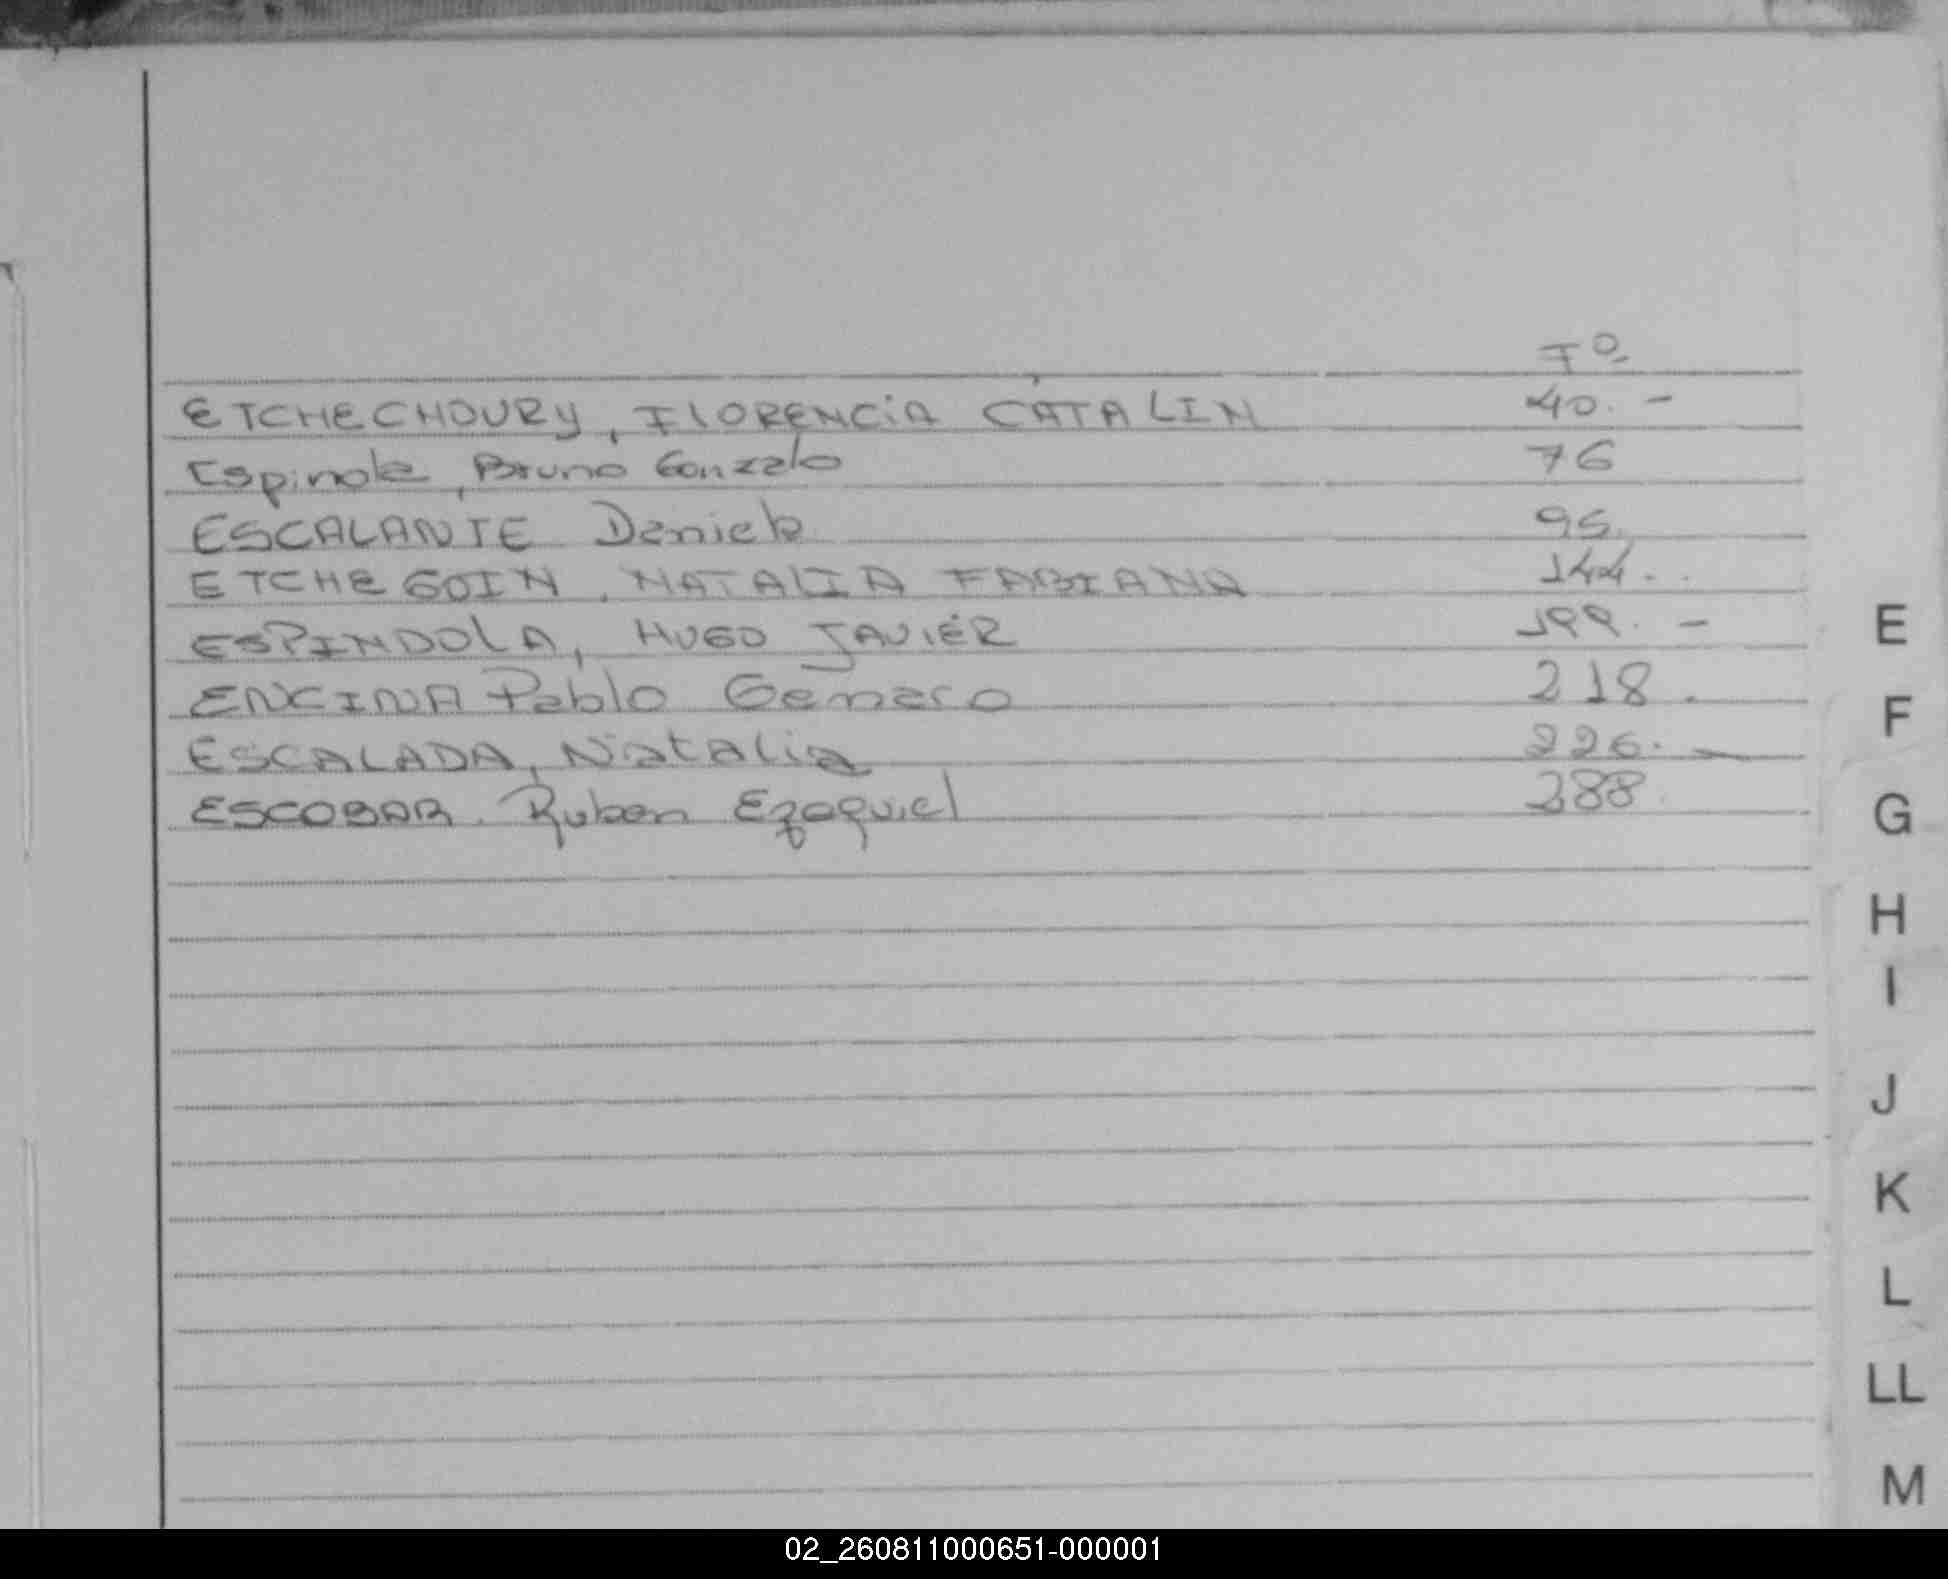 Fº
ETCHECHOURY, FLORENCIA CATALIN 40.-
Espinola, Bruno Gonzalo 76
ESCALANTE Daniela 95.
ETCHEGOIN, NATALIA FABIANA 144.
ESPINDOLA, HUGO JAVIER 199. -
ENCINA Pablo Genaro 218.
ESCALADA, Natalia 226. -
ESCOBAR. Ruben Ezequiel 288.
E
F
G
H
I
J
K
L
LL
M
02_260811000651-000001